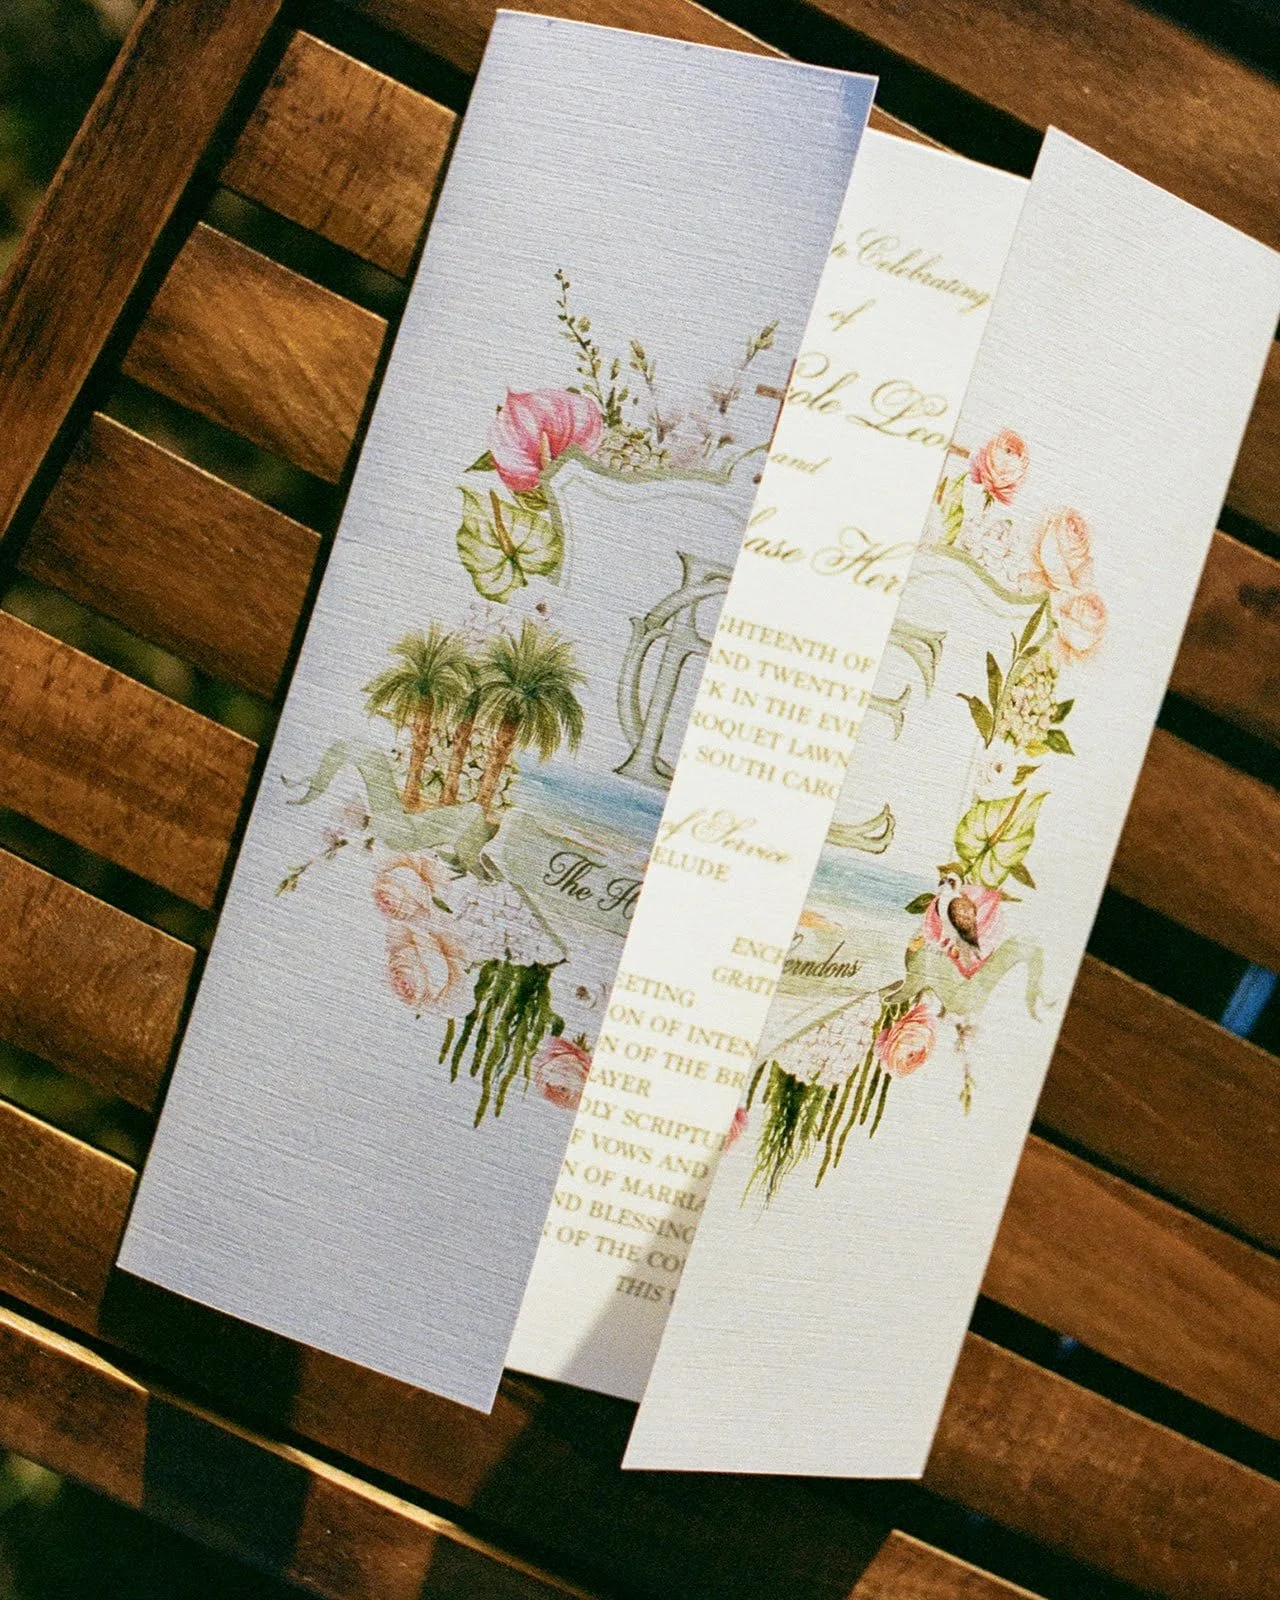 Celebrating
of
cole Loo
and
hase Her
GHTEENTH OF
AND TWENTY-F
CK IN THE EVE
ROQUET LAWN
, SOUTH CARO
of Service
ELUDE
The H
erndons
ENCH
GRATI
EETING
ON OF INTEN
N OF THE BR
RAYER
OLY SCRIPTUR
F VOWS AND
N OF MARRIA
ND BLESSING
N OF THE CO
THIS